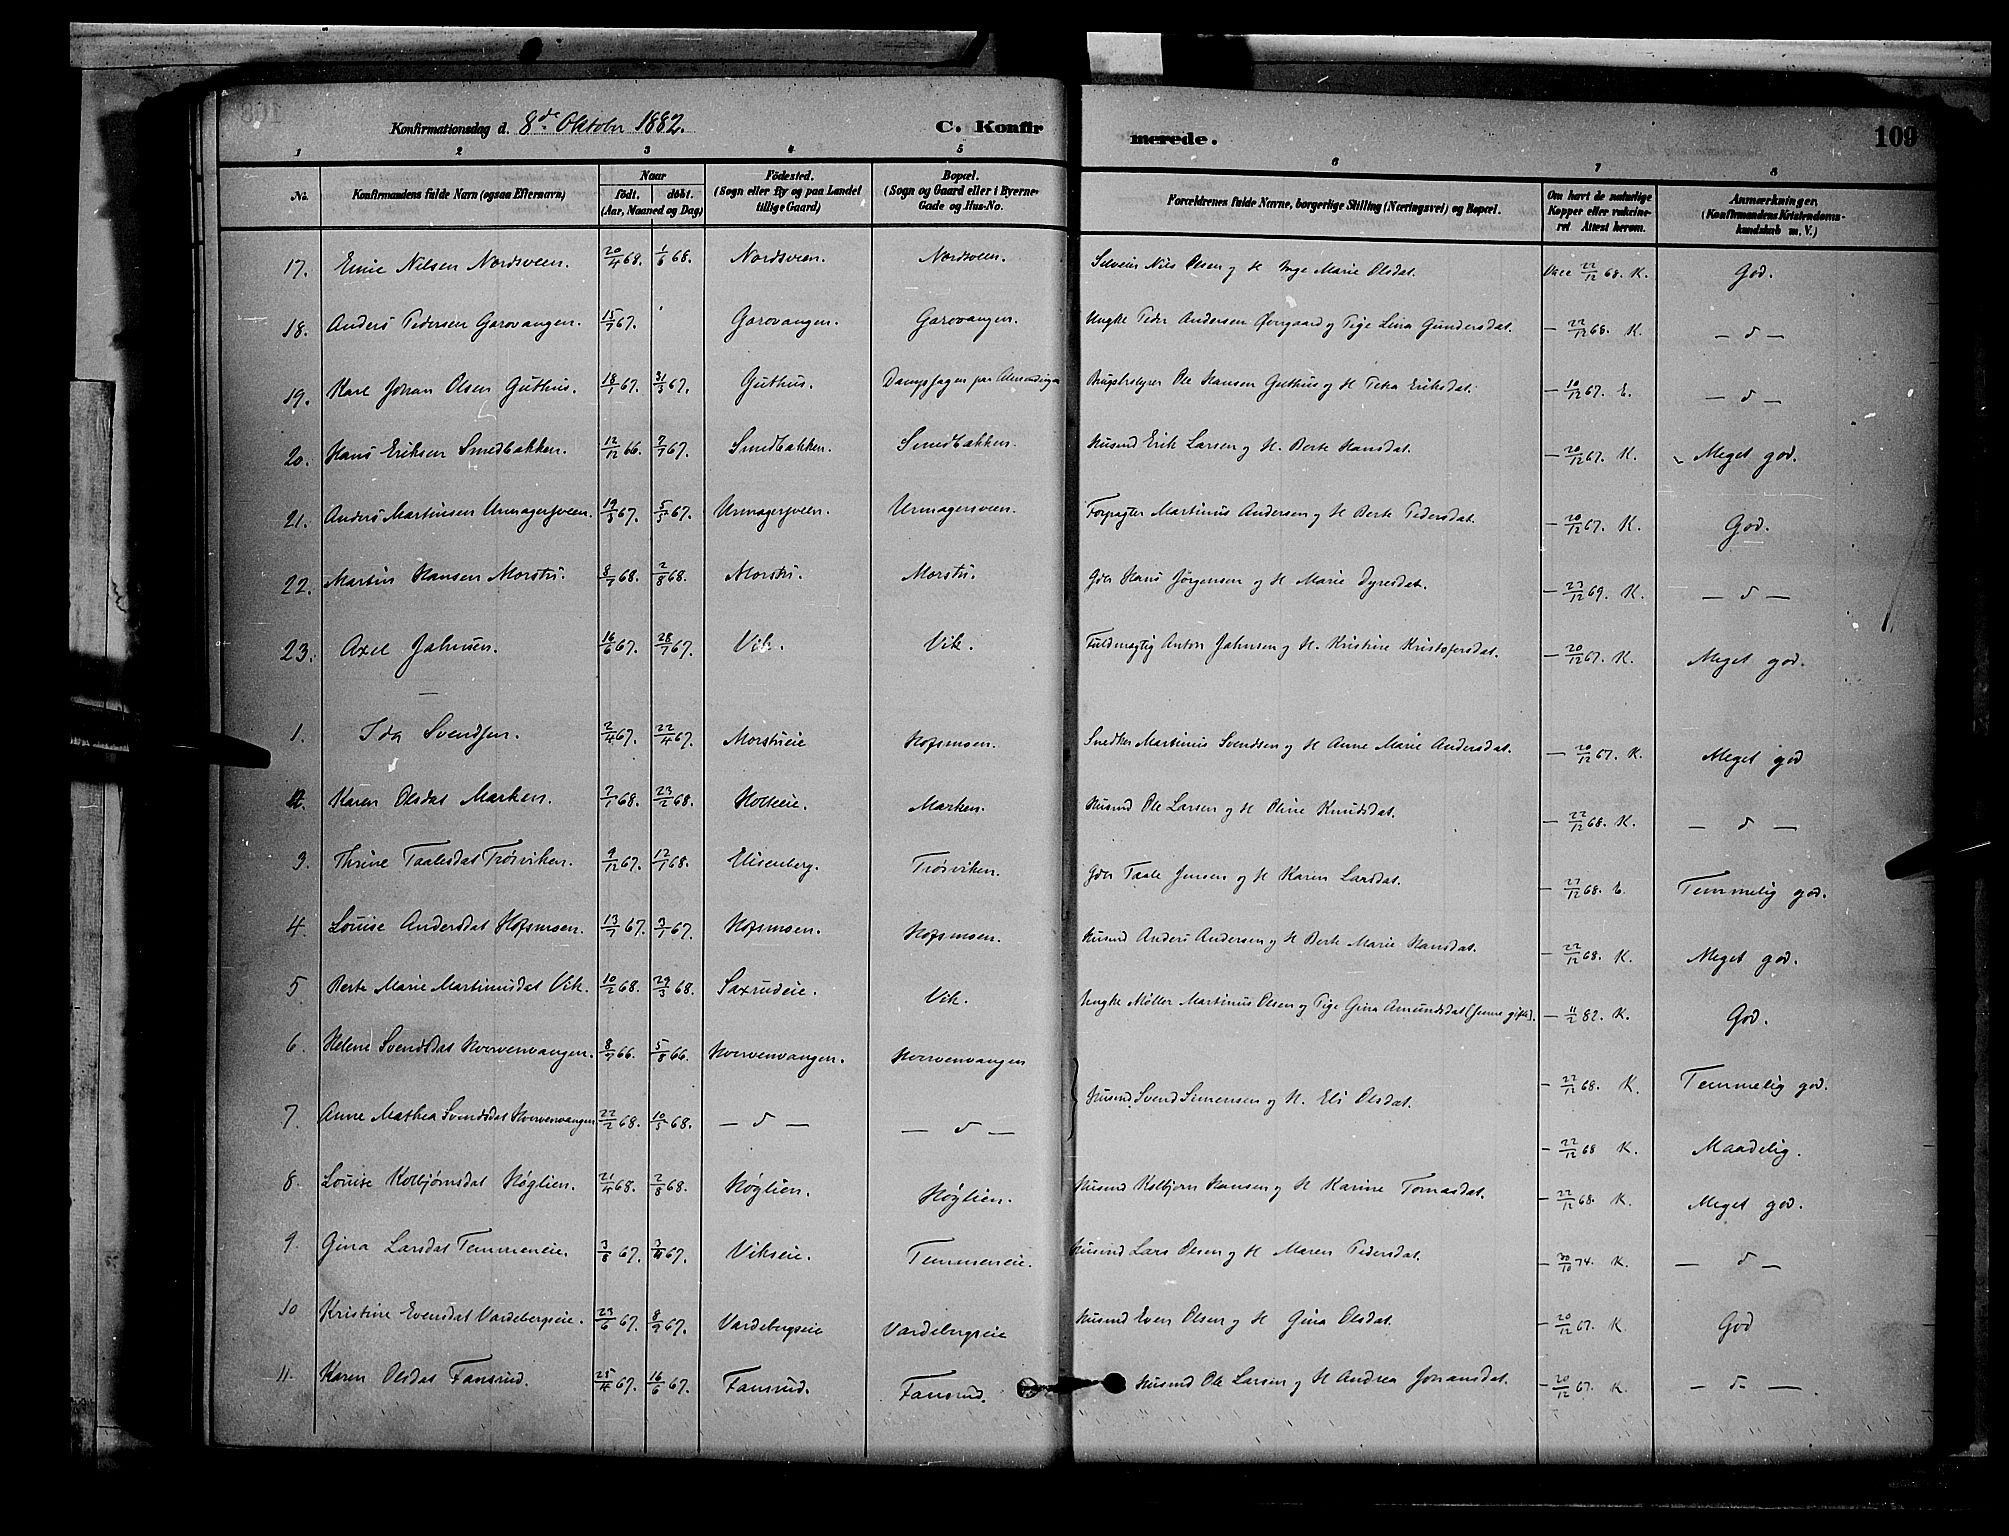 Konfirmationsdag d. 8de Oktobr 1882. C. Konfirmerede. 109
1 2 3 4 5 6 7 8
No. Konfirmandens fulde Navn (ogsaa Efternavn) Naar födt. döbt. (Aar, Maaned og Dag) Födested. (Sogn eller By og paa Landet tillige Gaard) Bopæl. (Sogn og Gaard eller i Byerne Gade og Hus-No. Forældrenes fulde Navne, borgerlige Stilling (Næringsvei) og Bopæl. Om havt de naturlige Kopper eller vakcineret Attest herom. Anmærkninger. (Konfirmandens Kristendomskundskab m. V.)
17. Nilsen Nordsveen. 20/4 68. 1/6 68. Nordsveen. Nordsveen. Selveier Nils Olsen og H Inge Marie Olsdat. Vacc 22/12 68. K. God.
18. Anders Pedersen Garovangen. 15/7 67. Garovangen. Garovangen. Ungke Peder Andersen Øvergaard og Pige Lina Gundersdat. — 22/12 68. K. — d —
19. Karl Johan Olsen Guthus. 18/1 67. 31/3 67. Guthus. Dampsagen paa Almendingen Brugsbestyrer Ole Hansen Guthus og H Petra Eriksdat. — 10/12 67. E. — d —
20. Hans Eriksen Smedbakken. 12/12 66. 7/7 67. Smedbakken. Smedbakken. Husmd Erik Larsen og H. Berte Hansdat. — 20/12 67. K. Meget god.
21. Anders Martinsen Urmagersveen. 19/3 67. 5/5 67. Urmagersveen. Urmagersveen. Forpagter Martinus Andersen og H Berte Pedersdat. — 20/12 67. K. God.
22. Martin Hansen Morstu. 8/7 68. 2/8 68. Morstu. Morstu. Gdr Hans Jörgensen og H Marie Dyresdat. — 27/12 69. K. — d —
23. Axel Jahnsen. 16/6 67. 28/7 67. Vik. Vik. Fuldmægtig Anton Jahnsen og H. Kristine Kristofersdat. — 20/12 67. K. Meget god.
1. Ida Svendsen. 2/4 67. 22/4 67. Morstueie Hofsmoen. Snedker Martinus Svendsen og H Anne Marie Andersdat. — 20/12 67. K. Meget god
2. Karen Olsdat Marken. 7/1 68. 23/2 68. Holteie. Marken. Husmd Ole Larsen og H Oline Knudsdat. — 22/12 68. K. — d —
3. Thrine Taalesdat Trösviken. 9/12 67. 12/1 68. Elisenberg. Trösviken. Gdr Taale Jensen og H Karen Larsdat. — 27/12 68. E. Temmelig god.
4. Louise Andersdat Hofsmoen. 13/1 67. 3/7 67. Hofsmoen. Hofsmoen. Husmd Anders Andersen og H Berte Marie Hansdat. — 22/12 68. K. Meget god.
5 Berte Marie Martinusdat Vik. 10/2 68. 29/3 68. Saxrudeie. Vik. Ungke Møller Martinus Olsen og Pige Gina Amundsdat (senere gift). — 11/2 82. K. God.
6. Helene Svendsdat Horvenvangen. 8/7 66. 5/8 66. Horvenvangen. Horvenvangen Husmd Svend Simensen og H. Eli Olsdat. — 22/12 68. K. Temmelig god.
7. Anne Mathea Svendsdat Horvenvangen 22/2 68. 10/5 68. — d — — d — — 22/12 68 K. Maadelig.
8. Louise Kolbjørnsdat Høglien. 21/4 68. 2/8 68. Høglien. Høglien. Husmd Kolbjørn Hansen og H Karine Tomasdat. — 22/12 68. K. Meget god.
9. Gina Larsdat Temmeneie. 3/8 67. 3/11 67. Vikseie. Temmeneie. Husmd Lars Olsen og H Maren Pedersdat. — 30/10 74. K. — d —
10 Kristine Evensdat Vardebergseie. 23/6 67. 8/9 67. Vardebergseie Vardebergseie Husmd Even Olsen og H Gina Olsdat. — 20/12 67. K. God
11. Karen Olsdat Fansrud. 25/4 67. 16/6 67. Fansrud. Fansrud. Husmd Ole Larsen og H Andrea Johansdat. — 20/12 67. K. — d —